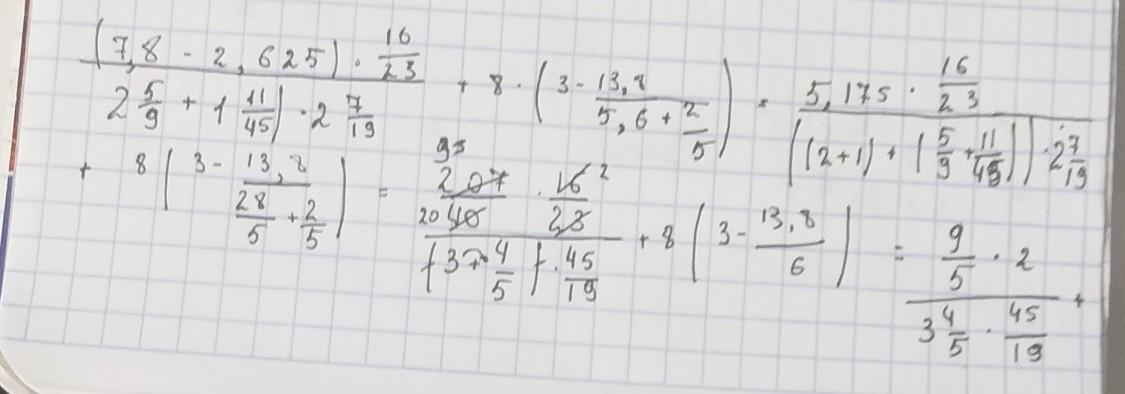 (7,8 - 2,625) · 16/23 / 2 5/9 + 1 11/45) · 2 7/19 + 8 · (3 - 13,8 / 5,6 + 2/5) = 5,175 · 16/23 / ((2+1) + (5/9 + 11/45)) · 2 7/19
+ 8 (3 - 13,8 / 28/5 + 2/5) = 207/40 · 16 2/23 / (3 + 4/5) · 45/19 + 8 (3 - 13,8/6) = 9/5 · 2 / 3 4/5 · 45/19 +